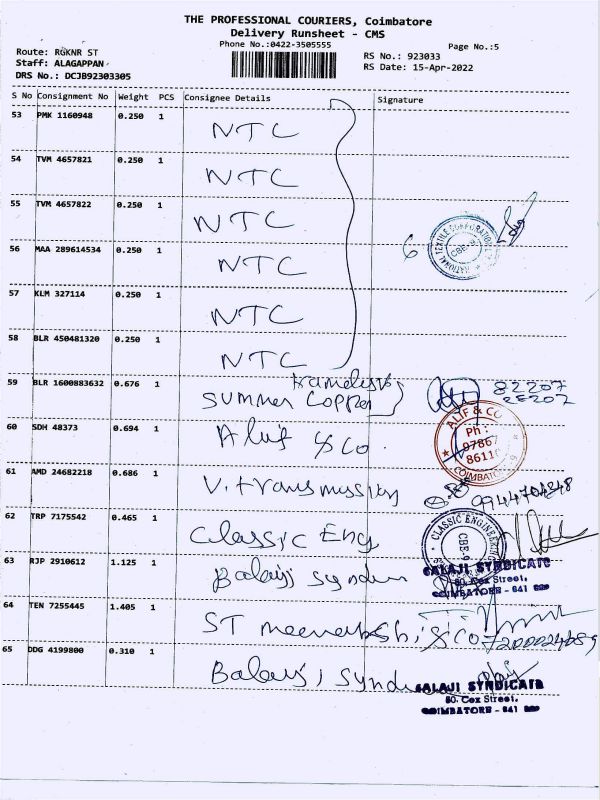 THE PROFESSIONAL COURIERS, Coimbatore
Delivery Runsheet - CMS
Phone No.:0422-3505555
Page No.:5
Route: RGKNR ST
Staff: ALAGAPPAN
DRS No.: DCJB92303305
RS No.: 923033
RS Date: 15-Apr-2022
S No Consignment No Weight PCS Consignee Details Signature
53 PMK 1160948 0.250 1 NTC
54 TVM 4657821 0.250 1 NTC
55 TVM 4657822 0.250 1 NTC
NATIONAL TEXTILE CORPORATION
CBE-9
6
56 MAA 289614534 0.250 1 NTC
57 KLM 327114 0.250 1 NTC
58 BLR 450481320 0.250 1 NTC
59 BLR 1600883632 0.676 1 Summer Copper
82207
60 SDH 48373 0.694 1 Alif & Co
ALIF & CO
Ph :
97867
COIMBATORE
61 AMD 24682218 0.686 1 V. transmission
62 TRP 7175542 0.465 1 Classic Eng
CLASSIC ENGINEERING
CBE-9
63 RJP 2910612 1.125 1 Balaji
BALAJI SYNDICATE
80, Cox Street,
COIMBATORE - 641
64 TEN 7255445 1.405 1 ST meenakshi & co
65 DDG 4199800 0.310 1 Balaji
BALAJI SYNDICATE
80, Cox Street,
COIMBATORE - 641